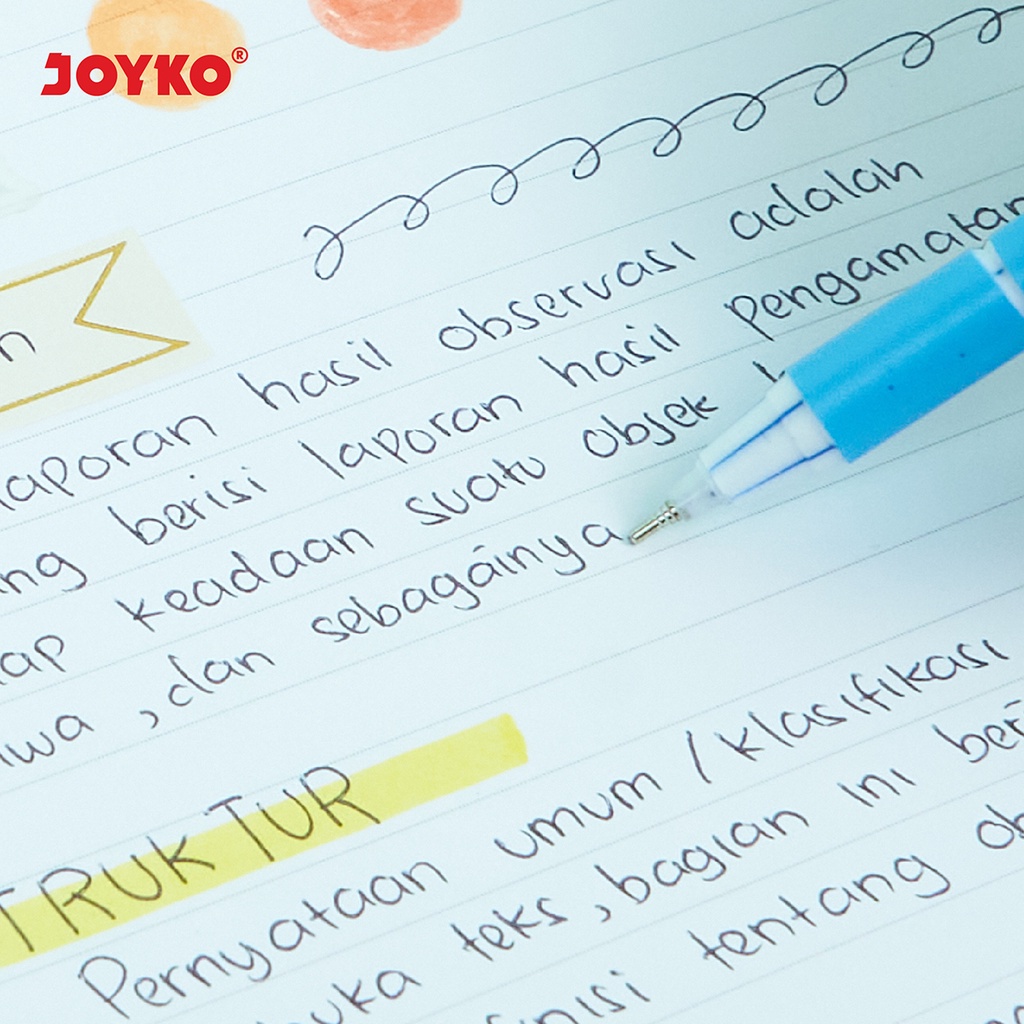 JOYKO®
n
laporan hasil observasi adalah
berisi laporan hasil pengamatan
keadaan suatu objek
, dan sebagainya
TRUKTUR
Pernyataan umum / klasifikasi
teks, bagian ini
tentang